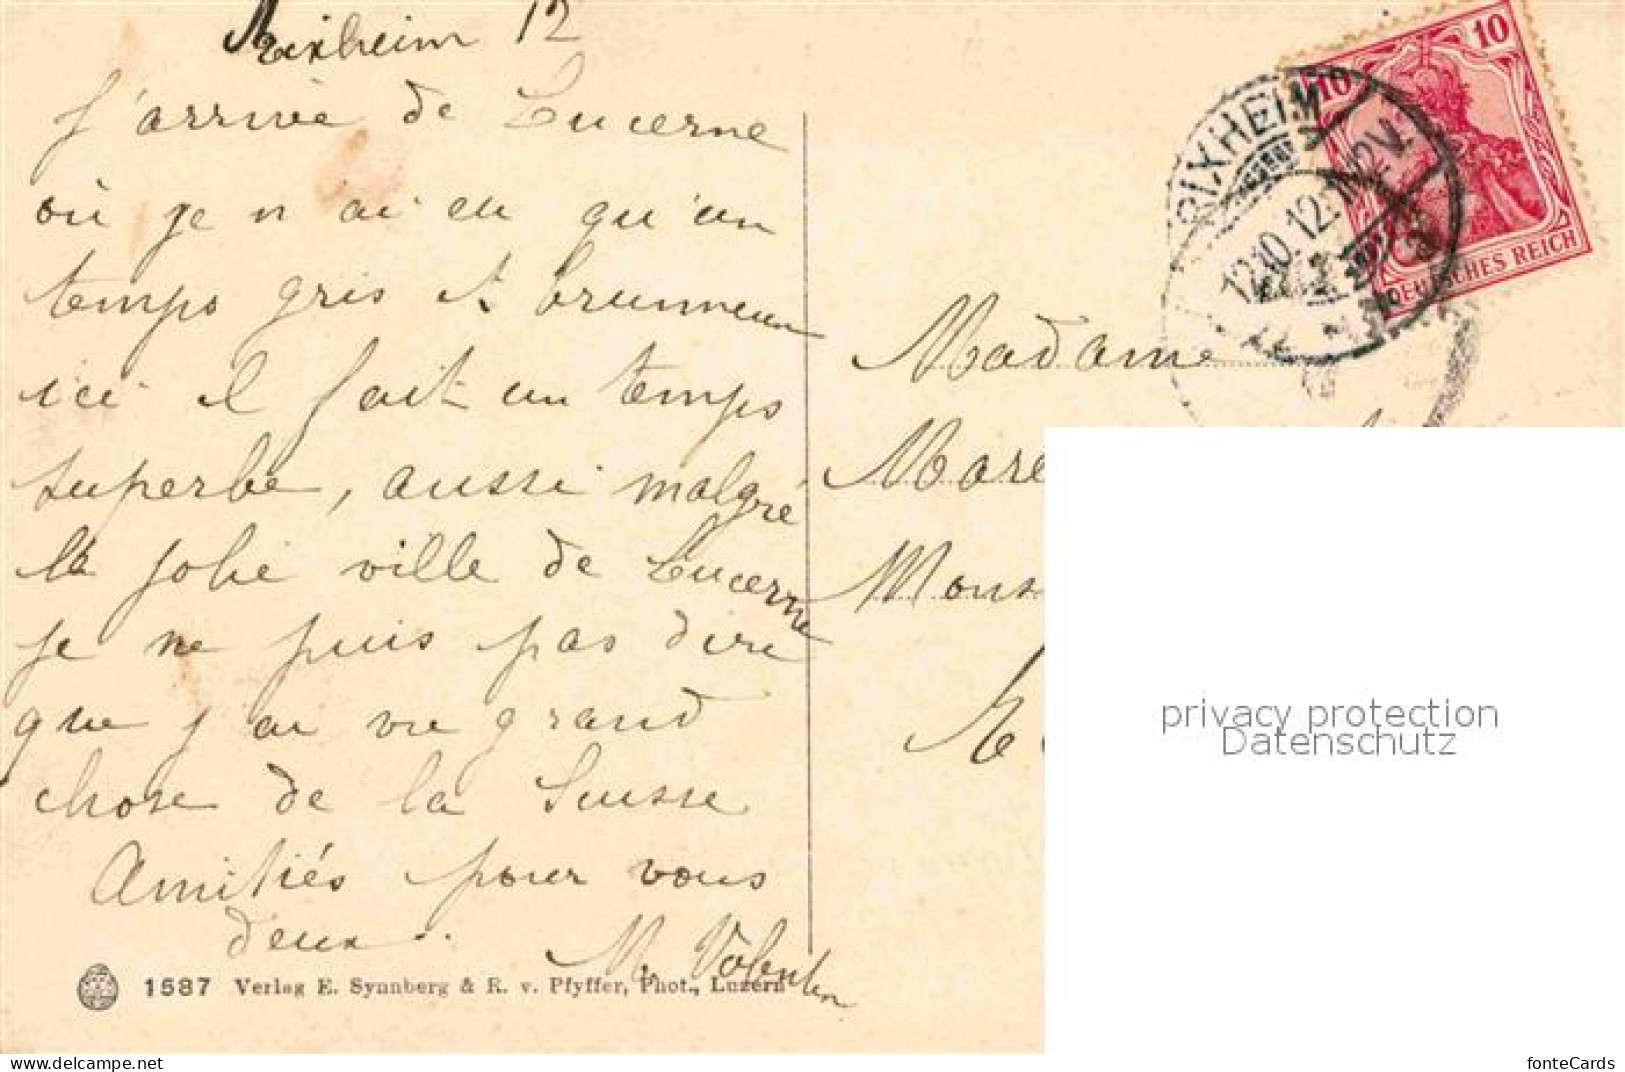 Rixheim 12
J'arrive de Lucerne
où je n'ai eu qu'un
temps gris et brumeux
ici il fait un temps
superbe, aussi malgré
la jolie ville de Lucerne
je ne puis pas dire
que j'ai vu grand
chose de la Suisse
Amitiés pour vous
deux.
M. Valentin
1587 Verlag E. Synnberg & R. v. Pfyffer, Phot., Luzern
10 10
DEUTSCHES REICH
RIXHEIM
12.10.12. 11-12V.
Madame
privacy protection
Datenschutz
www.delcampe.net
fonteCards